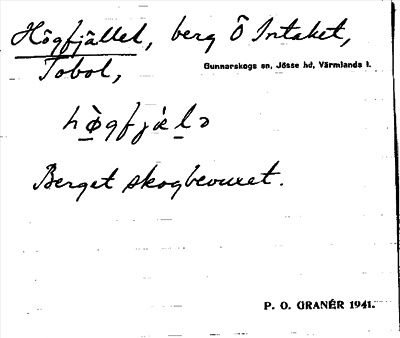 Högfjället, berg Ö Intaket,
Tobol,
Gunnarskogs sn, Jösse hd, Värmlands l.
hø̀gfjælə
Berget skogbevuxet.
P. O. GRANÉR 1941.